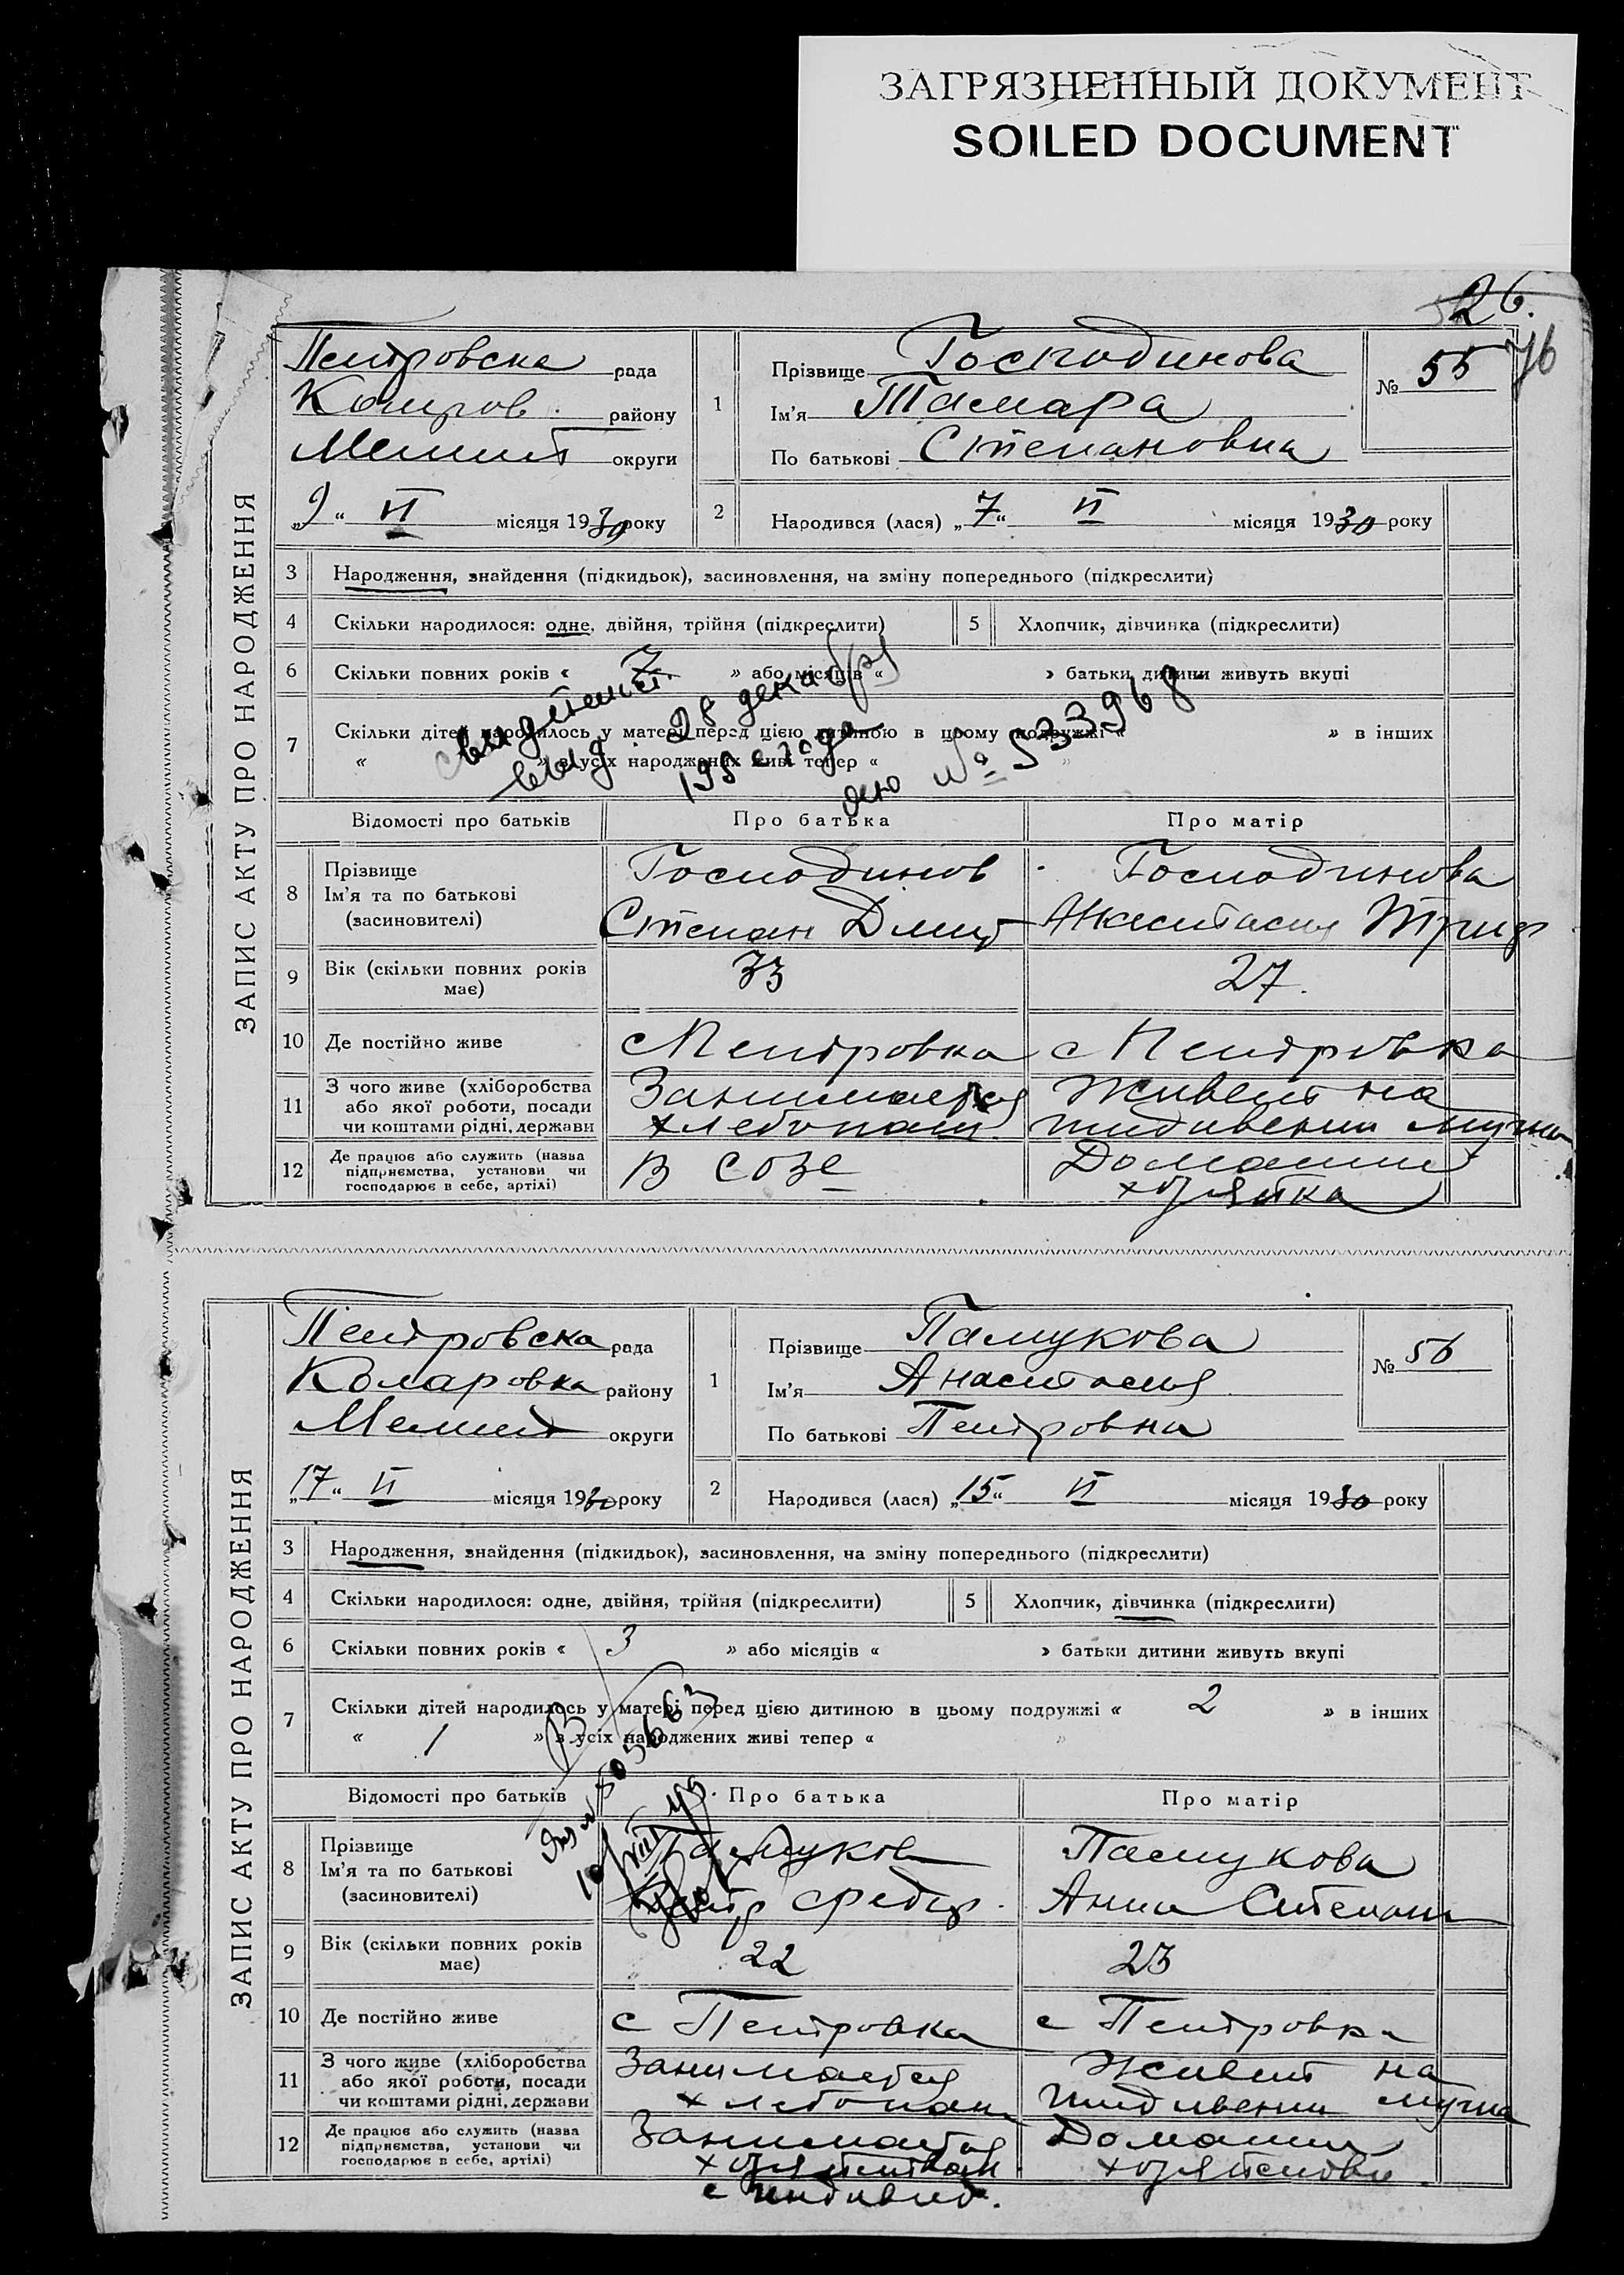 ЗАГРЯЗНЕННЫЙ ДОКУМЕНТ
SOILED DOCUMENT
26.
76
ЗАПИС АКТУ ПРО НАРОДЖЕННЯ
Петровска рада
району
Мелит округи
„9“ VI місяця 1930 року
1 Прізвище Господинова
Ім'я Тамара
По батькові Степановна
№ 55
2 Народився (лася) „7“ VI місяця 1930 року
3 Народження, знайдення (підкидьок), засиновлення, на зміну попереднього (підкреслити)
4 Скільки народилося: одне, двійня, трійня (підкреслити) 5 Хлопчик, дівчинка (підкреслити)
6 Скільки повних років « 7 » або місяців « » батьки дитини живуть вкупі
7 Скільки дітей народилось у матері перед цією дитиною в цьому подружжі « » в інших
« » з усіх народжених живі тепер « »
выд. 28 декабря
года
№ 533968
Відомості про батьків Про батька Про матір
8 Прізвище Господинов Господинова
Ім'я та по батькові
(засновителі) Степан Дмит Анастасия Триф
9 Вік (скільки повних років має) 33 27.
10 Де постійно живе с Петровка с Петровка
11 З чого живе (хліборобства Занимается Живет на
або якої роботи, посади
чи коштами рідні, держави хлебопаш. иждивении мужа
12 Де працює або служить (назва В созе Домашн
підприємства, установи чи
господарює в себе, артілі) хозяйка
ЗАПИС АКТУ ПРО НАРОДЖЕННЯ
Петровска рада
Коларовка району
Мелит округи
„17“ VI місяця 1930 року
1 Прізвище Памукова
Ім'я Анастасия
По батькові Петровна
№ 56
2 Народився (лася) „15“ VI місяця 1930 року
3 Народження, знайдення (підкидьок), засиновлення, на зміну попереднього (підкреслити)
4 Скільки народилося: одне, двійня, трійня (підкреслити) 5 Хлопчик, дівчинка (підкреслити)
6 Скільки повних років « 3 » або місяців « » батьки дитини живуть вкупі
7 Скільки дітей народилось у матері перед цією дитиною в цьому подружжі « 2 » в інших
« 1 » з усіх народжених живі тепер « »
Відомості про батьків Про батька Про матір
8 Прізвище Памуков Памукова
Ім'я та по батькові
(засиновителі) Петр Анна Степан
9 Вік (скільки повних років має) 22 23
10 Де постійно живе с Петровка с Петровка
11 З чого живе (хліборобства Занимается Живет на
або якої роботи, посади
чи коштами рідні, держави хлебопаш иждивении мужа
12 Де працює або служить (назва Занимается Домашн
підприємства, установи чи
господарює в себе, артілі)